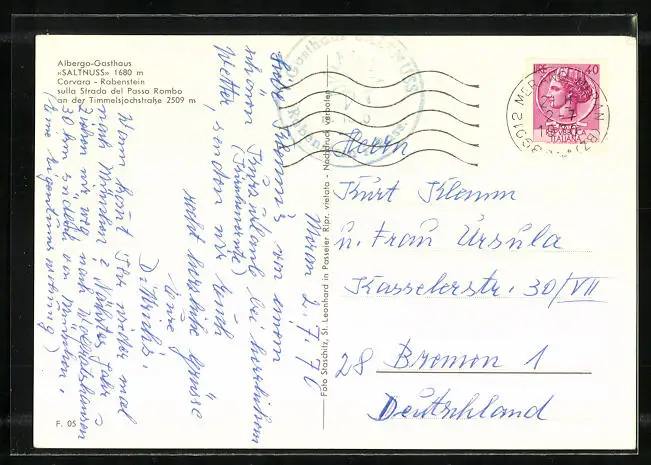 Albergo-Gasthaus
«SALTNUSS» 1680 m
Corvara - Rabenstein
sulla Strada del Passo Rombo
an der Timmelsjochstraße 2509 m
Meran 2.7.76
Liebe Klemm's, von einem
schönen
(Traumreise) bei herrlichem
Wetter, senden wir Euch
recht herzliche Grüsse
Eure
D.
Wann kommt Ihr wieder mal
nach München? Nächstes Jahr
ziehen wir weg nach Wolfratshausen
30 km südlich von München.
(eine Eigentumswohnung)
F. 05
Foto Staschitz, St. Leonhard in Passeier Ripr. vietata - Nachdruck verboten
Gasthaus SALTNUSS
Rabenstein
LIRE 40
REPUBBLICA
ITALIANA
39012 MERANO MERAN (BZ)
Herrn
Kurt Klemm
u. Frau Ursula
Kasselerstr. 30/VII
28 Bremen 1
Deutschland